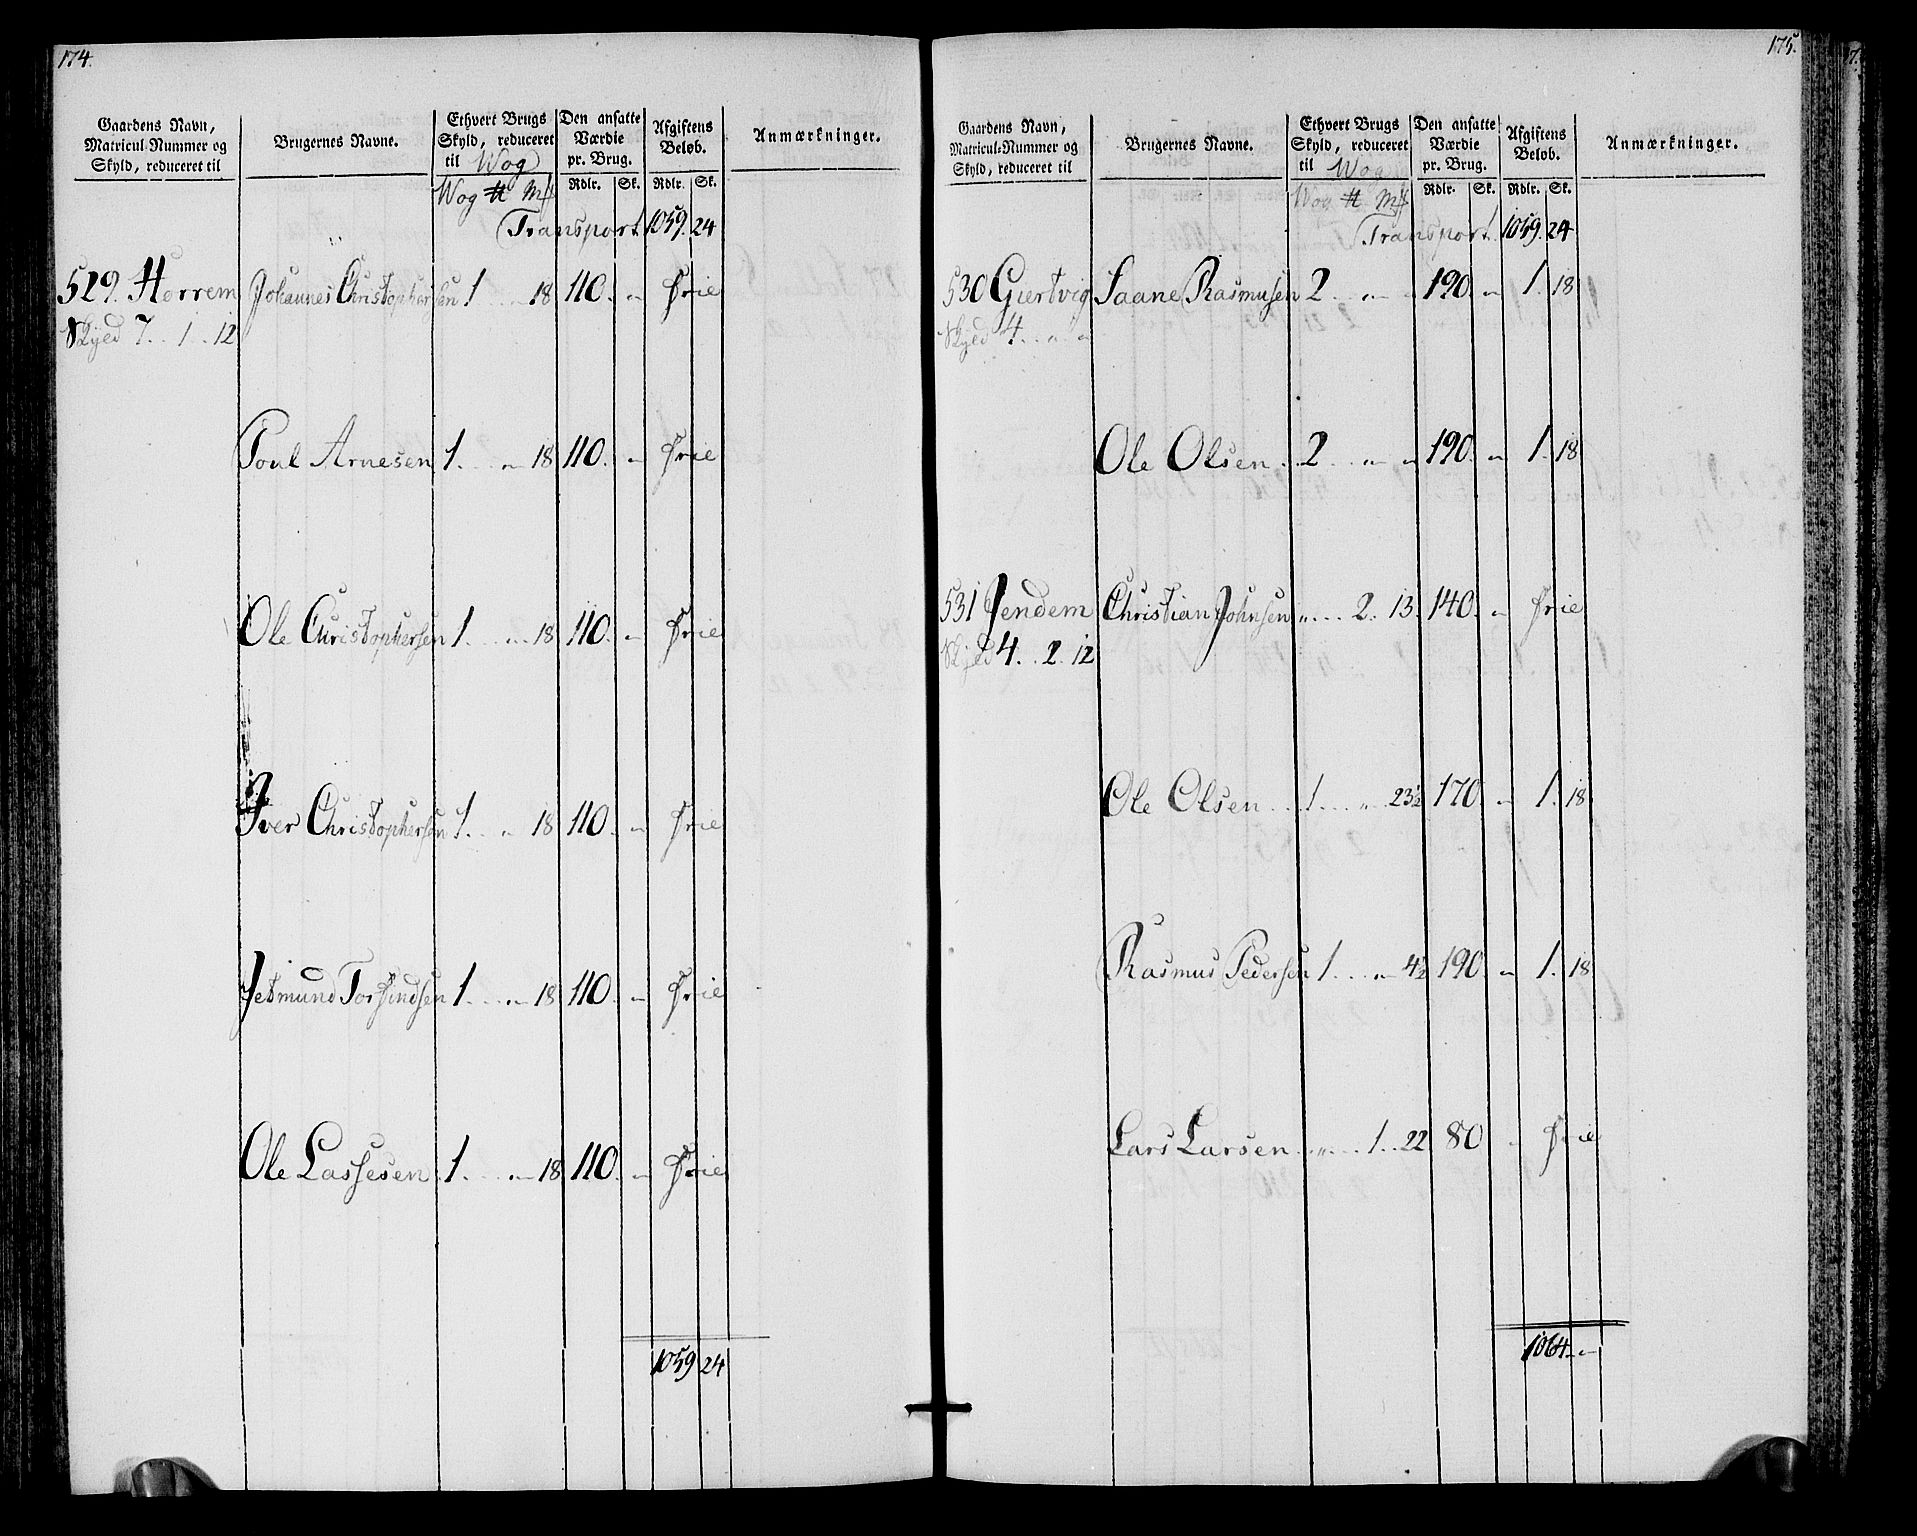 174.
Gaardens Navn, Matricul-Nummer og Skyld, reduceret til | Brugernes Navne. | Ethvert Brugs Skyld, reduceret til Wog | Den ansatte Værdie pr. Brug. | Afgiftens Beløb. | Anmærkninger.
Wog ℔ M℔ | Rdlr. | Sk. | Rdlr. | Sk.
Transport 1059. 24
529. Horrem Johannes Christophersen 1 .. 18 110. " Frie
Skyld 7. . 1 . 12
Poul Arnesen 1. . . " 18 110. " Frie
Ole Christophersen 1. . . " 18 110. " Frie
Iver Christophersen 1. . " 18 110. " Frie
Jetmund Torfindsen 1. . . " 18 110. " Frie
Ole Lassesen. 1. . . " 18 110. " Frie
1059 24
175.
Gaardens Navn, Matricul-Nummer og Skyld, reduceret til | Brugernes Navne. | Ethvert Brugs Skyld, reduceret til Wog | Den ansatte Værdie pr. Brug. | Afgiftens Beløb. | Anmærkninger.
Wog ℔ M℔ | Rdlr. | Sk. | Rdlr. | Sk.
Transport. 1059. 24
530 Giertvig Saane Rasmusen 2 . . " " 190. " 1. 18
Skyld 4. . " "
Ole Olsen . . 2 . . " " 190. " 1. 18
531 Jendem Christian Johnsen " . . . 2. 13. 140. " Frie
Skyld 4. . 2. 12
Ole Olsen . . . 1. . . " 23½ 170. " 1. 18
Rasmus Pedersen 1. . . " 4½ 190. " 1. 18
Lars Larsen . . " . . . 1. . 22 80 " Frie
1064. "